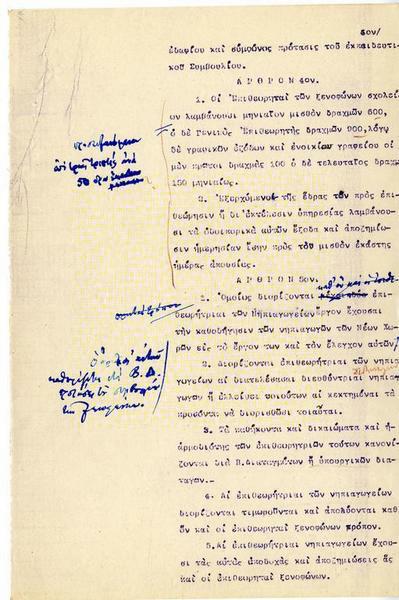 5ον/
ἐδαφίου καὶ σύμφωνος πρότασις τοῦ ἐκπαιδευτι-
κοῦ Συμβουλίου.
Α Ρ Θ Ρ Ο Ν 4ον.
1. Οἱ Ἐπιθεωρηταὶ τῶν ξενοφώνων σχολεί-
ων λαμβάνουσι μηνιαῖον μισθὸν δραχμῶν 600,
ὁ δὲ Γενικὸς Ἐπιθεωρητὴς δραχμῶν 900, λόγῳ
δὲ γραφικῶν ἐξόδων καὶ ἐνοικίου γραφείου οἱ
μὲν πρῶτοι δραχμὰς 100 ὁ δὲ τελευταῖος δραχ
150 μηνιαίως.
2. Ἐξερχόμενοι τῆς ἕδρας τῶν πρὸς ἐπι-
θεώρησιν ἢ δι' ἐκτέλεσιν ὑπηρεσίας λαμβάνου-
σι τὰ ὁδοιπορικὰ αὐτῶν ἔξοδα καὶ ἀποζημίω-
σιν ἡμερησίαν ἴσην πρὸς τὸν μισθὸν ἑκάστης
ἡμέρας ἀπουσίας.
Α Ρ Θ Ρ Ο Ν 5ον.
1. Ὁμοίως διορίζονται ἐπι-
θεωρήτριαι τῶν Νηπιαγωγείων ἔργον ἔχουσαι
τὴν καθοδήγησιν τῶν νηπιαγωγῶν τῶν Νέων Χω-
ρῶν εἰς τὸ ἔργον των καὶ τὸν ἔλεγχον αὐτῶν
2. Διορίζονται ἐπιθεωρήτριαι τῶν νηπια-
γωγείων αἱ διατελέσασαι διευθύντριαι νηπια-
γωγῶν ἢ ἐλλείψει τοιούτων αἱ κεκτημέναι τὰ
προσόντα νὰ διορισθῶσι τοιαῦται.
3. Τὰ καθήκοντα καὶ δικαιώματα καὶ ἡ
ἁρμοδιότης τῶν ἐπιθεωρητριῶν τούτων κανονί-
ζονται διὰ Β.Διαταγμάτων ἢ ὑπουργικῶν δια-
ταγῶν.-
4. Αἱ ἐπιθεωρήτριαι τῶν νηπιαγωγείων
διορίζονται τιμωροῦνται καὶ ἀπολύονται καθ'
ὃν καὶ οἱ ἐπιθεωρηταὶ ξενοφώνων τρόπον.
5. Αἱ ἐπιθεωρήτριαι νηπιαγωγείων ἔχου-
σι τὰς αὐτὰς ἀποδοχὰς καὶ ἀποζημιώσεις ἃς
καὶ οἱ ἐπιθεωρηταὶ ξενοφώνων.